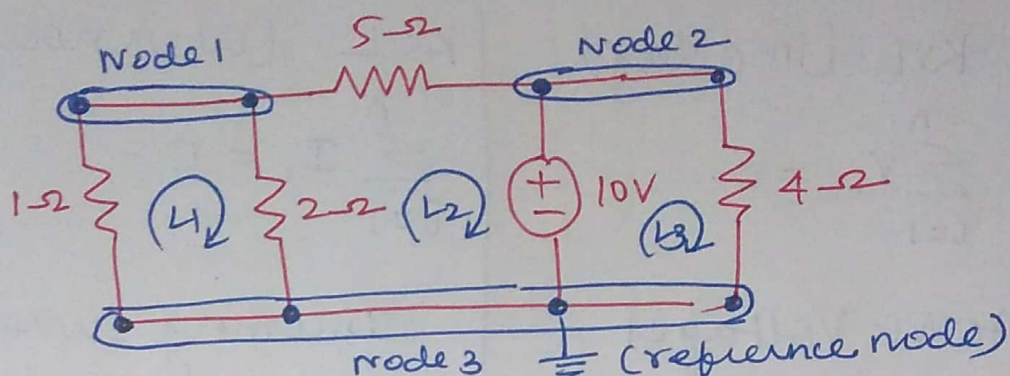 5Ω
Node 1
Node 2
1Ω
L1
2Ω
L2
+
-
10V
L3
4Ω
Node 3
(refrernce node)